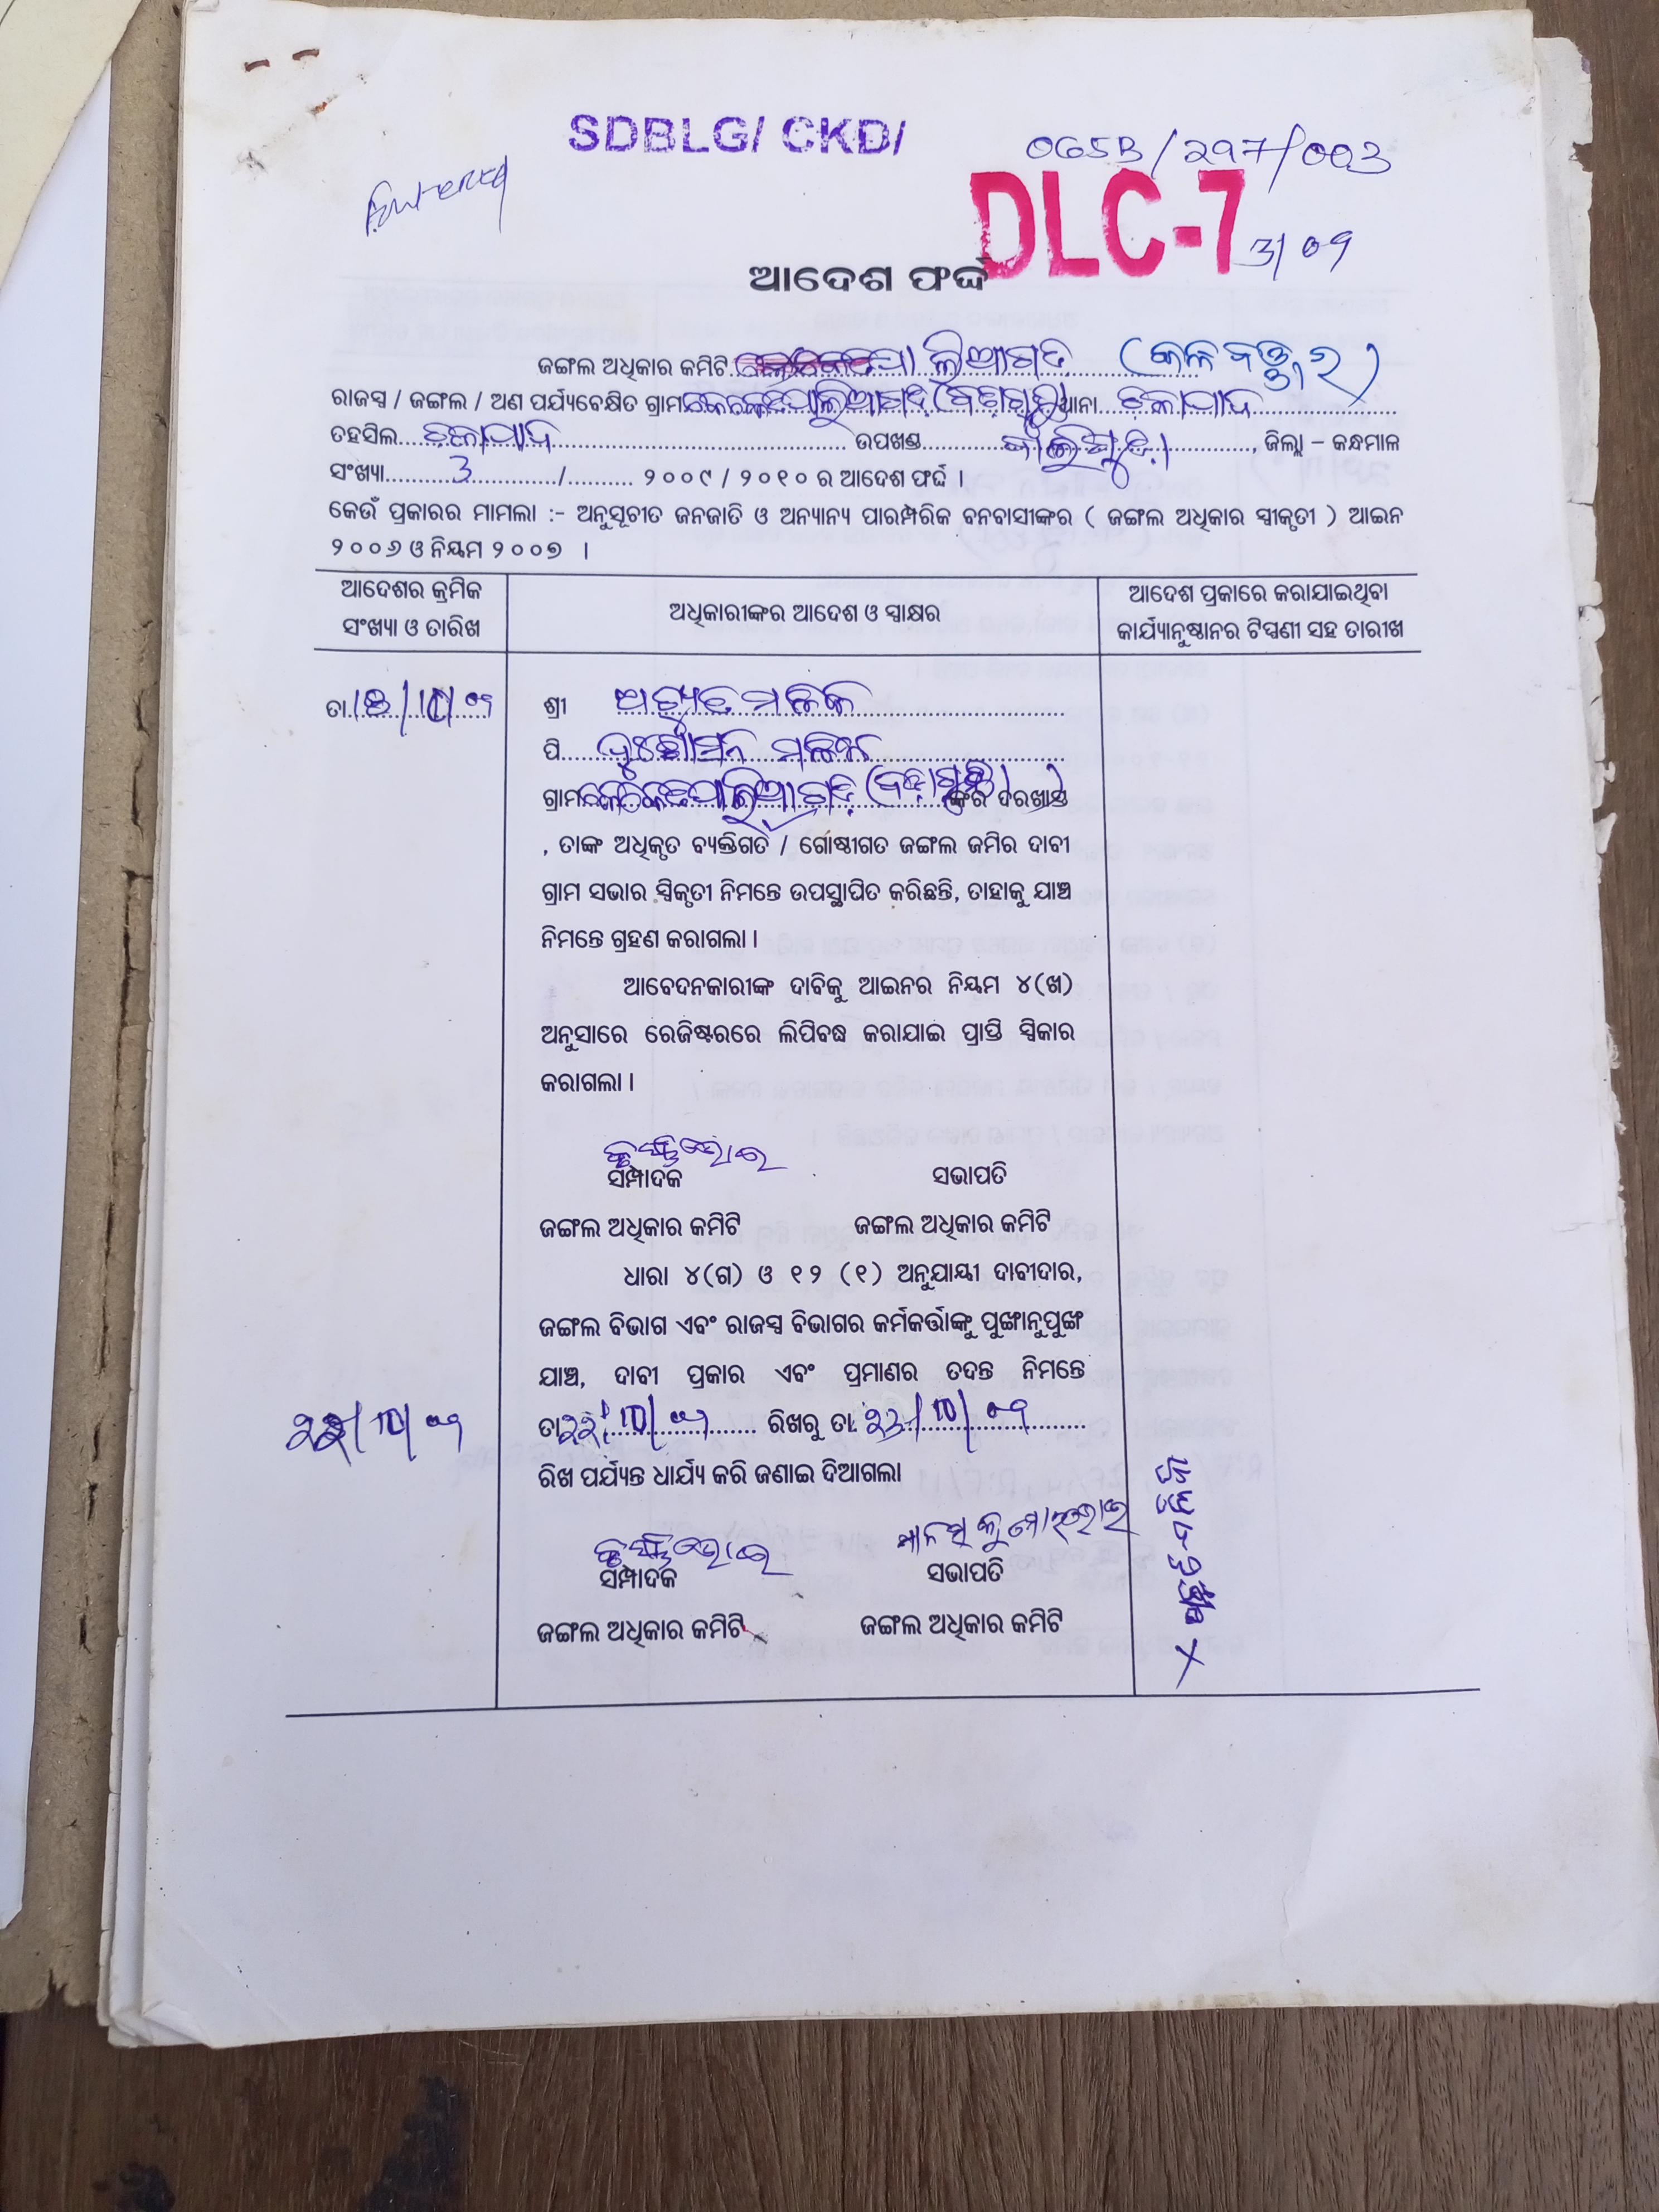 SDBLG/ CKD/
OGSB/297/003
Entered
DLC-7
3/09
ଆଦେଶ ଫର୍ଦ୍ଦ
ଜଙ୍ଗଲ ଅଧିକାର କମିଟି
ରାଜସ୍ୱ / ଜଙ୍ଗଲ / ଅଣ ପର୍ଯ୍ୟବେକ୍ଷିତ ଗ୍ରାମ ଥାନା ଚକାପାଦ
ତହସିଲ ଚକାପାଦ ଉପଖଣ୍ଡ ବାଲିଗୁଡ଼ା, ଜିଲ୍ଲା – କନ୍ଧମାଳ
ସଂଖ୍ୟା 3 / ୨୦୦୯ / ୨୦୧୦ ର ଆଦେଶ ଫର୍ଦ୍ଦ ।
କେଉଁ ପ୍ରକାରର ମାମଲା :- ଅନୁସୂଚୀତ ଜନଜାତି ଓ ଅନ୍ୟାନ୍ୟ ପାରମ୍ପରିକ ବନବାସୀଙ୍କର ( ଜଙ୍ଗଲ ଅଧିକାର ସ୍ୱୀକୃତୀ ) ଆଇନ
୨୦୦୬ ଓ ନିୟମ ୨୦୦୭ ।
ଆଦେଶର କ୍ରମିକ
ସଂଖ୍ୟା ଓ ତାରିଖ
ଅଧିକାରୀଙ୍କର ଆଦେଶ ଓ ସ୍ୱାକ୍ଷର
ଆଦେଶ ପ୍ରକାରେ କରାଯାଇଥିବା
କାର୍ଯ୍ୟାନୁଷ୍ଠାନର ଟିପ୍ପଣୀ ସହ ତାରୀଖ
ତା
ଶ୍ରୀ ଅଚ୍ୟୁତ ମଳିକ
ପି ଦୁଃଶାସନ ମଳିକ
ଗ୍ରାମ ଙ୍କର ଦରଖାସ୍ତ
, ତାଙ୍କ ଅଧିକୃତ ବ୍ୟକ୍ତିଗତ / ଗୋଷ୍ଠୀଗତ ଜଙ୍ଗଲ ଜମିର ଦାବୀ
ଗ୍ରାମ ସଭାର ସ୍ୱିକୃତୀ ନିମନ୍ତେ ଉପସ୍ଥାପିତ କରିଛନ୍ତି, ତାହାକୁ ଯାଞ୍ଚ
ନିମନ୍ତେ ଗ୍ରହଣ କରାଗଲା ।
ଆବେଦନକାରୀଙ୍କ ଦାବିକୁ ଆଇନର ନିୟମ ୪(ଖ)
ଅନୁସାରେ ରେଜିଷ୍ଟରରେ ଲିପିବଦ୍ଧ କରାଯାଇ ପ୍ରାପ୍ତି ସ୍ୱିକାର
କରାଗଲା ।
ସମ୍ପାଦକ ସଭାପତି
ଜଙ୍ଗଲ ଅଧିକାର କମିଟି ଜଙ୍ଗଲ ଅଧିକାର କମିଟି
ଧାରା ୪(ଗ) ଓ ୧୨ (୧) ଅନୁଯାୟୀ ଦାବୀଦାର,
ଜଙ୍ଗଲ ବିଭାଗ ଏବଂ ରାଜସ୍ୱ ବିଭାଗର କର୍ମକର୍ତ୍ତାଙ୍କୁ ପୁଙ୍ଖାନୁପୁଙ୍ଖ
ଯାଞ୍ଚ, ଦାବୀ ପ୍ରକାର ଏବଂ ପ୍ରମାଣର ତଦନ୍ତ ନିମନ୍ତେ
୨୨/10/୦୯
ତା ୨୨/10/୦୯ ରିଖରୁ ତା ୨୩/10/୦୯
ରିଖ ପର୍ଯ୍ୟନ୍ତ ଧାର୍ଯ୍ୟ କରି ଜଣାଇ ଦିଆଗଲା
ସମ୍ପାଦକ ସଭାପତି
ଜଙ୍ଗଲ ଅଧିକାର କମିଟି ଜଙ୍ଗଲ ଅଧିକାର କମିଟି